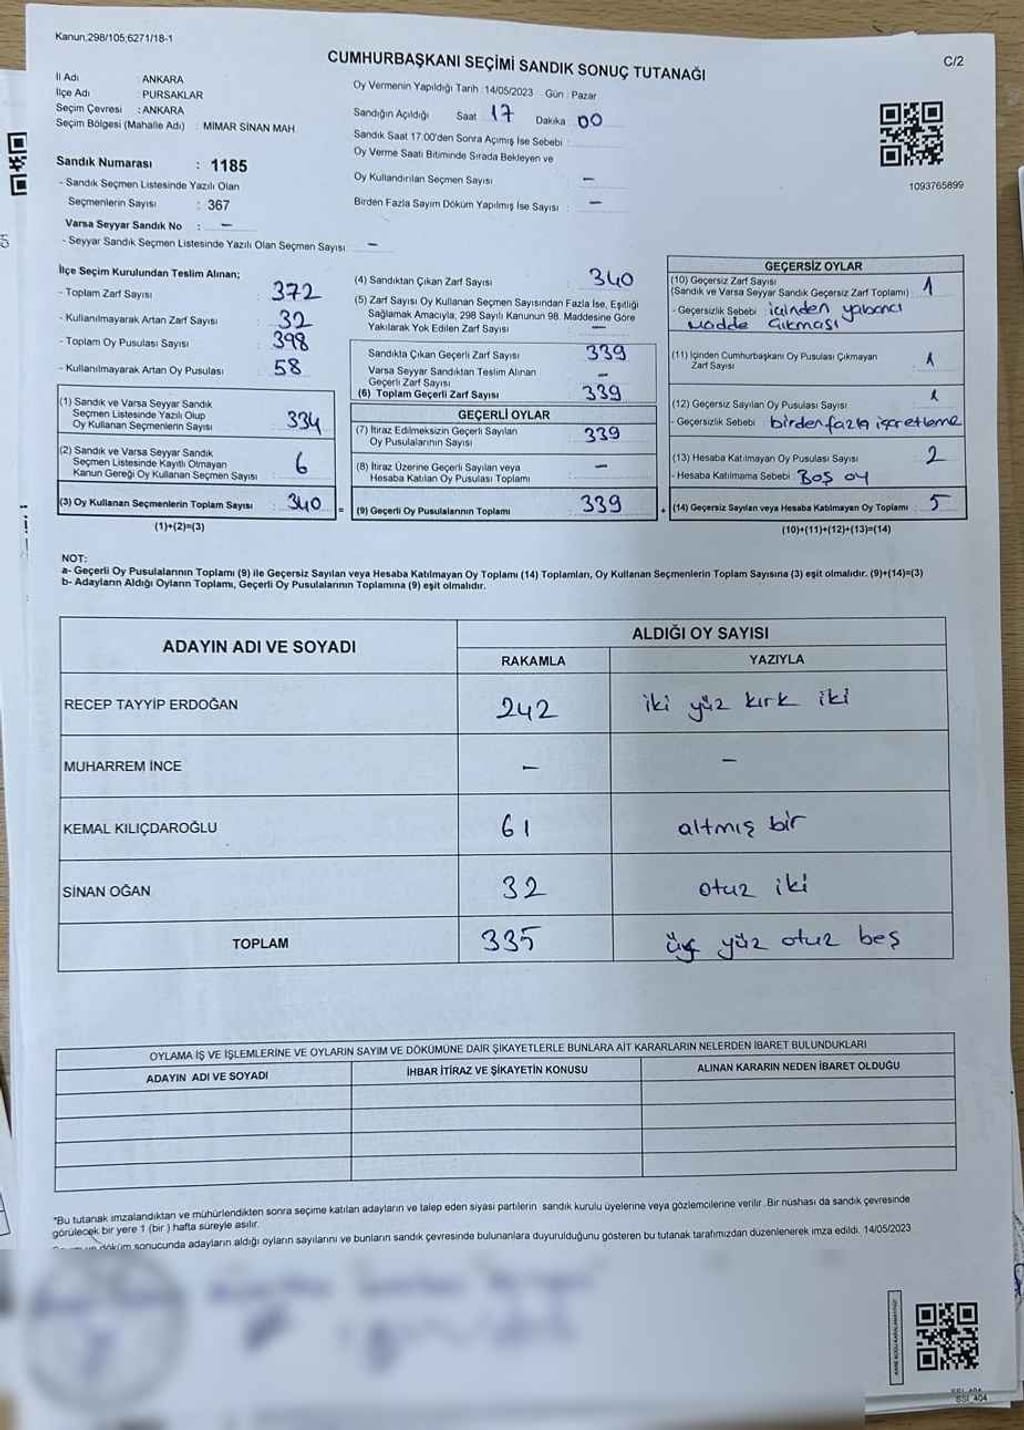 Kanun,298/105,6271/18-1
CUMHURBAŞKANI SEÇİMİ SANDIK SONUÇ TUTANAĞI
C/2
İl Adı : ANKARA
İlçe Adı : PURSAKLAR
Seçim Çevresi : ANKARA
Seçim Bölgesi (Mahalle Adı) : MİMAR SİNAN MAH
Sandık Numarası : 1185
- Sandık Seçmen Listesinde Yazılı Olan
Seçmenlerin Sayısı : 367
Varsa Seyyar Sandık No : -
- Seyyar Sandık Seçmen Listesinde Yazılı Olan Seçmen Sayısı -
Oy Vermenin Yapıldığı Tarih : 14/05/2023 Gün : Pazar
Sandığın Açıldığı Saat 17 Dakika 00
Sandık Saat 17.00'den Sonra Açımış İse Sebebi :
Oy Verme Saati Bitiminde Sırada Bekleyen ve
Oy Kullandırılan Seçmen Sayısı -
Birden Fazla Sayım Döküm Yapılmış İse Sayısı : -
1093765899
İlçe Seçim Kurulundan Teslim Alınan;
- Toplam Zarf Sayısı : 372
- Kullanılmayarak Artan Zarf Sayısı : 32
- Toplam Oy Pusulası Sayısı : 398
- Kullanılmayarak Artan Oy Pusulası : 58
(1) Sandık ve Varsa Seyyar Sandık
Seçmen Listesinde Yazılı Olup
Oy Kullanan Seçmenlerin Sayısı : 334
(2) Sandık ve Varsa Seyyar Sandık
Seçmen Listesinde Kayıtlı Olmayan
Kanun Gereği Oy Kullanan Seçmen Sayısı : 6
(3) Oy Kullanan Seçmenlerin Toplam Sayısı : 340
(1)+(2)=(3)
=
(4) Sandıktan Çıkan Zarf Sayısı : 340
(5) Zarf Sayısı Oy Kullanan Seçmen Sayısından Fazla İse, Eşitliği
Sağlamak Amacıyla, 298 Sayılı Kanunun 98. Maddesine Göre
Yakılarak Yok Edilen Zarf Sayısı : -
Sandıkta Çıkan Geçerli Zarf Sayısı : 339
Varsa Seyyar Sandıktan Teslim Alınan
Geçerli Zarf Sayısı : -
(6) Toplam Geçerli Zarf Sayısı : 339
GEÇERLİ OYLAR
(7) İtiraz Edilmeksizin Geçerli Sayılan
Oy Pusulalarının Sayısı : 339
(8) İtiraz Üzerine Geçerli Sayılan veya
Hesaba Katılan Oy Pusulası Toplamı : -
(9) Geçerli Oy Pusulalarının Toplamı : 339
+
GEÇERSİZ OYLAR
(10) Geçersiz Zarf Sayısı
(Sandık ve Varsa Seyyar Sandık Geçersiz Zarf Toplamı) : 1
- Geçersizlik Sebebi : içinden yabancı
madde çıkması
(11) İçinden Cumhurbaşkanı Oy Pusulası Çıkmayan
Zarf Sayısı : 1
(12) Geçersiz Sayılan Oy Pusulası Sayısı : 1
- Geçersizlik Sebebi : birden fazla işaretleme
(13) Hesaba Katılmayan Oy Pusulası Sayısı : 2
- Hesaba Katılmama Sebebi : Boş oy
(14) Geçersiz Sayılan veya Hesaba Katılmayan Oy Toplamı : 5
(10)+(11)+(12)+(13)=(14)
NOT:
a- Geçerli Oy Pusulalarının Toplamı (9) ile Geçersiz Sayılan veya Hesaba Katılmayan Oy Toplamı (14) Toplamları, Oy Kullanan Seçmenlerin Toplam Sayısına (3) eşit olmalıdır. (9)+(14)=(3)
b- Adayların Aldığı Oyların Toplamı, Geçerli Oy Pusulalarının Toplamına (9) eşit olmalıdır.
ADAYIN ADI VE SOYADI
ALDIĞI OY SAYISI
RAKAMLA YAZIYLA
RECEP TAYYİP ERDOĞAN 242 iki yüz kırk iki
MUHARREM İNCE - -
KEMAL KILIÇDAROĞLU 61 altmış bir
SİNAN OĞAN 32 otuz iki
TOPLAM 335 üç yüz otuz beş
OYLAMA İŞ VE İŞLEMLERİNE VE OYLARIN SAYIM VE DÖKÜMÜNE DAİR ŞİKAYETLERLE BUNLARA AİT KARARLARIN NELERDEN İBARET BULUNDUKLARI
ADAYIN ADI VE SOYADI İHBAR İTİRAZ VE ŞİKAYETİN KONUSU ALINAN KARARIN NEDEN İBARET OLDUĞU
*Bu tutanak imzalandıktan ve mühürlendikten sonra seçime katılan adayların ve talep eden siyasi partilerin sandık kurulu üyelerine veya gözlemcilerine verilir. Bir nüshası da sandık çevresinde
görülecek bir yere 1 (bir ) hafta süreyle asılır.
döküm sonucunda adayların aldığı oyların sayılarını ve bunların sandık çevresinde bulunanlara duyurulduğunu gösteren bu tutanak tarafımızdan düzenlenerek imza edildi. 14/05/2023
SSI_404